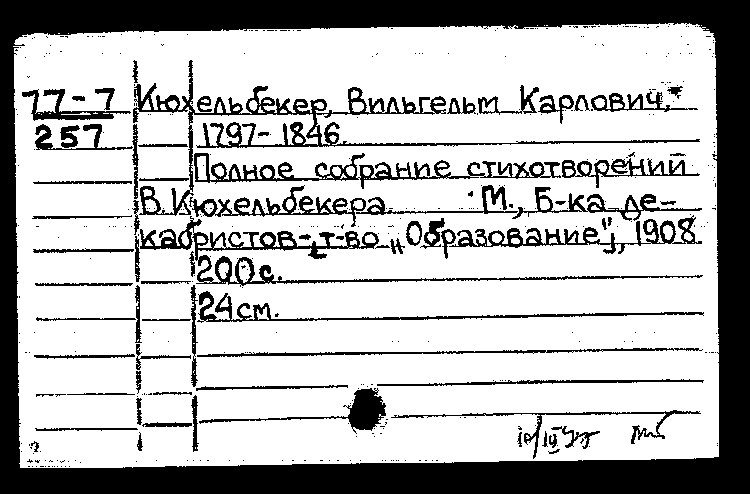 77-7 Кюхельбекер, Вильгельм Карлович,
257 1797-1846.
Полное собрание стихотворений
В.Кюхельбекера. М., Б-ка де-
кабристов-т-во „Образование", 1908
200с.
24см.